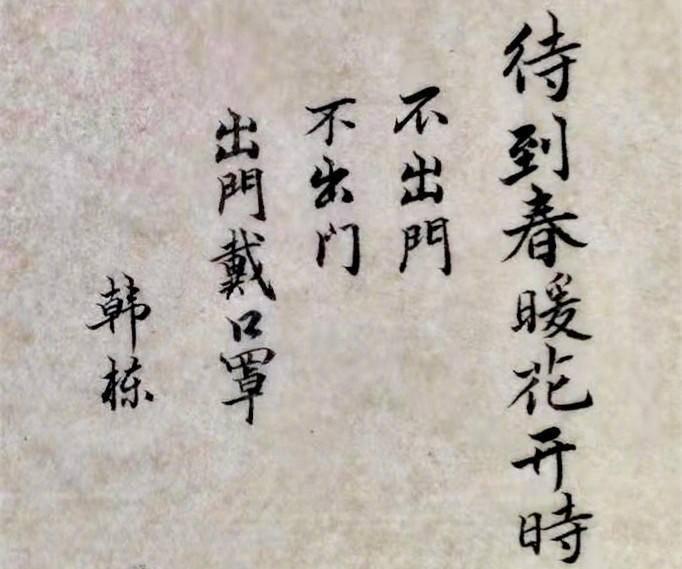 待到春暖花开時
不出門
不出门
出門戴口罩
韩栋